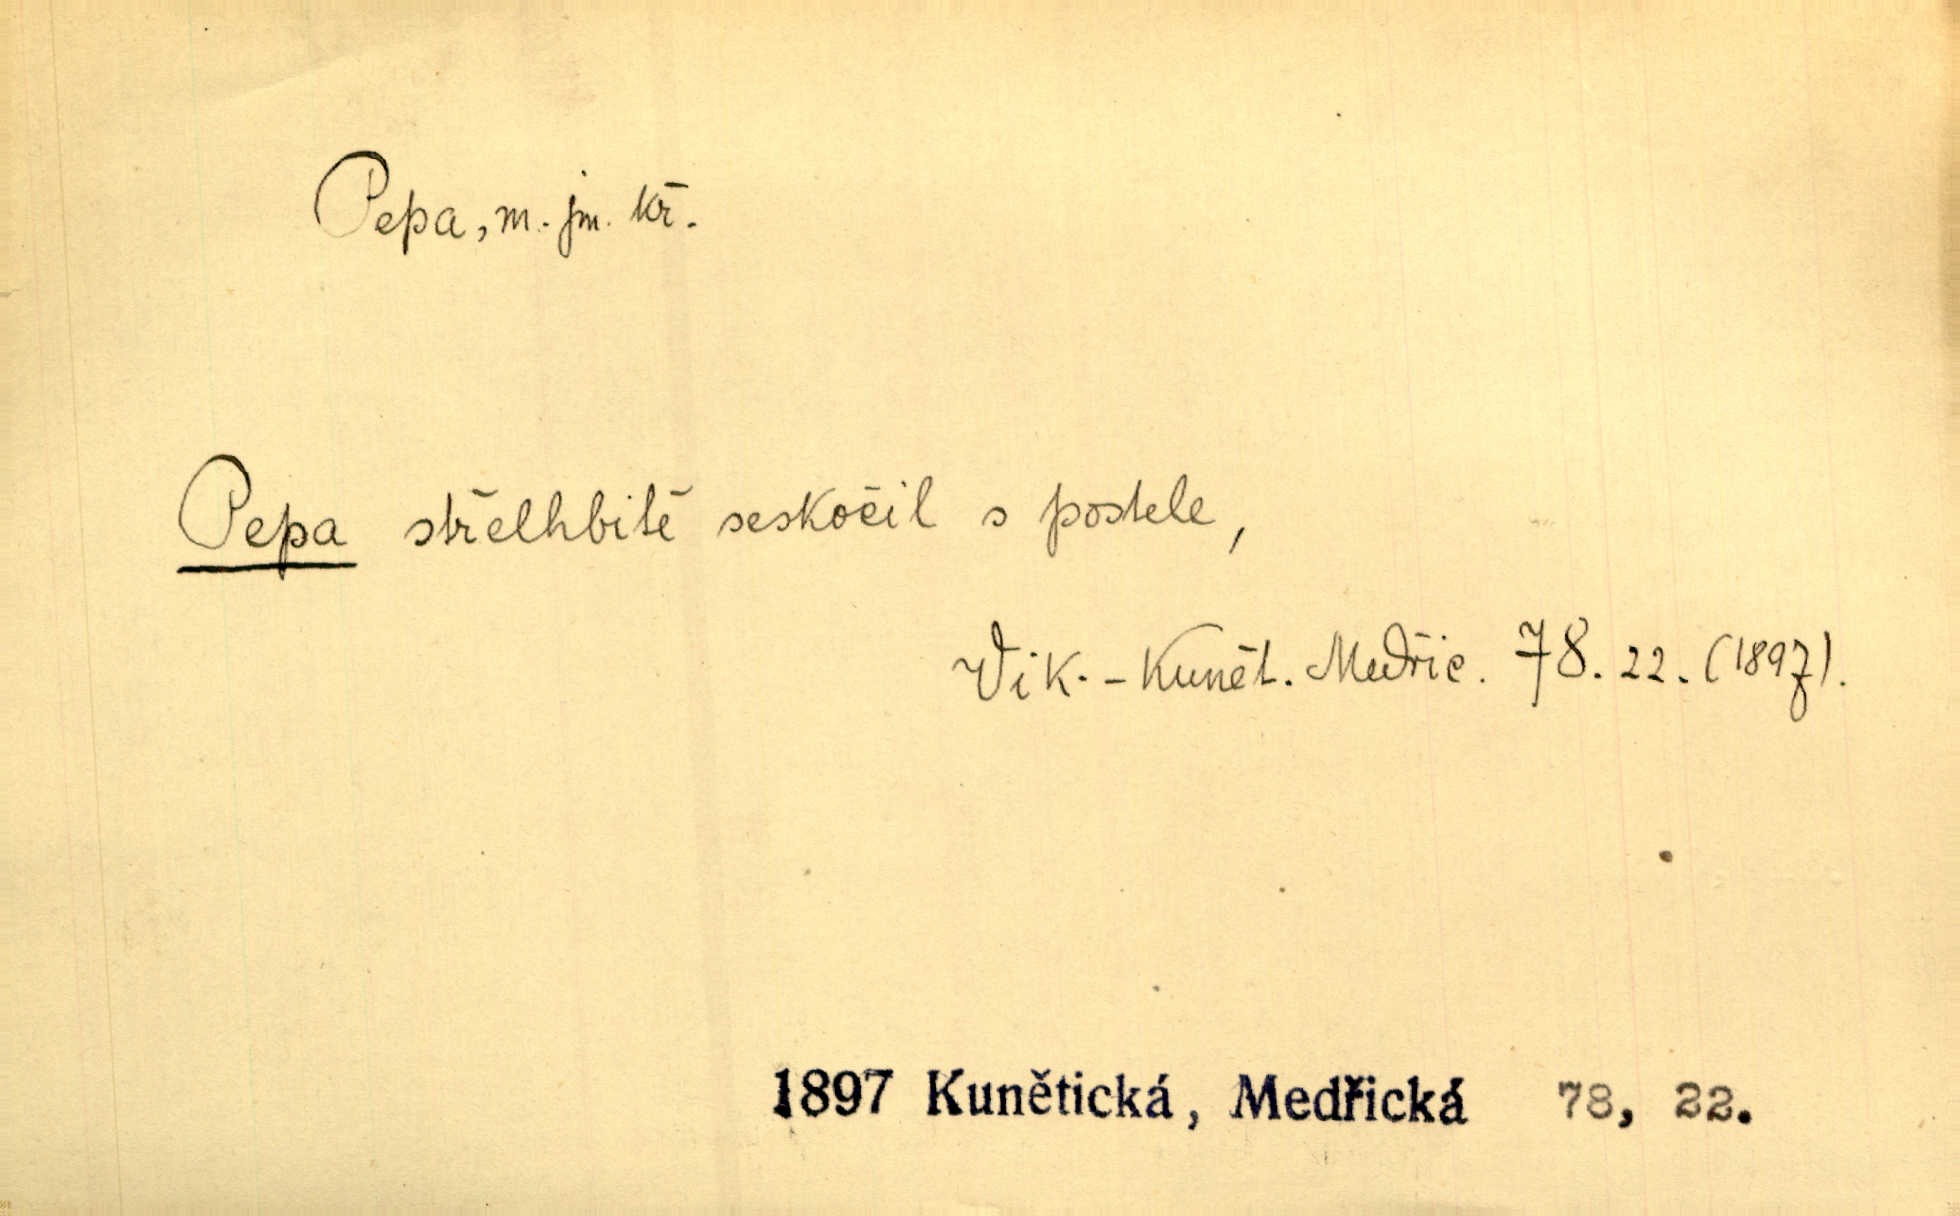 Pepa, m. jm. kř.
Pepa střelhbitě seskočil s postele,
Vik. - Kunět. Medřic. 78. 22. (1897).
1897 Kunětická, Medřická 78, 22.